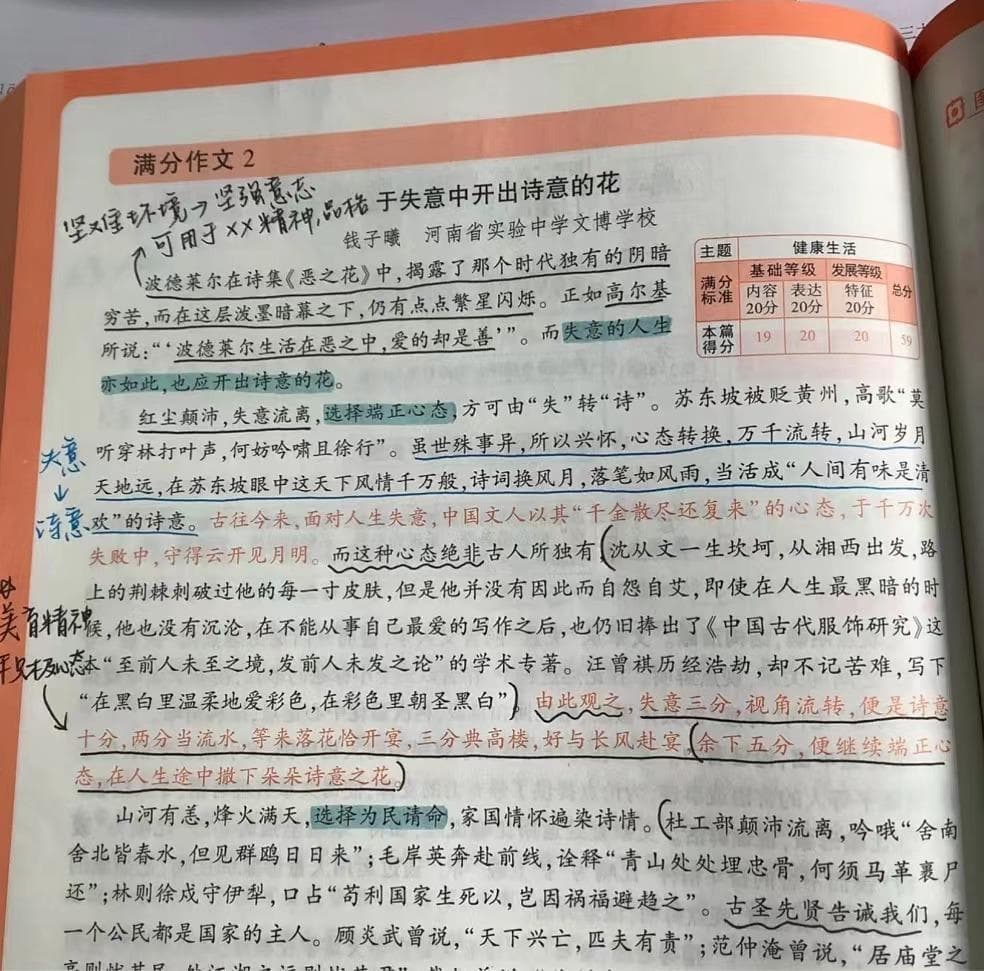 满分作文2
坚难环境→坚强意志
可用于××精神,品格
于失意中开出诗意的花
钱子曦 河南省实验中学文博学校
主题 健康生活
满分标准 基础等级 发展等级 总分
内容20分 表达20分 特征20分
本篇得分 19 20 20 59
波德莱尔在诗集《恶之花》中,揭露了那个时代独有的阴暗
穷苦,而在这层泼墨暗幕之下,仍有点点繁星闪烁。正如高尔基
所说:“‘波德莱尔生活在恶之中,爱的却是善’”。而失意的人生
亦如此,也应开出诗意的花。
红尘颠沛,失意流离,选择端正心态,方可由“失”转“诗”。苏东坡被贬黄州,高歌“莫
听穿林打叶声,何妨吟啸且徐行”。虽世殊事异,所以兴怀,心态转换,万千流转,山河岁月
天地远,在苏东坡眼中这天下风情千万般,诗词换风月,落笔如风雨,当活成“人间有味是清
欢”的诗意。古往今来,面对人生失意,中国文人以其“千金散尽还复来”的心态,于千万次
失败中,守得云开见月明。而这种心态绝非古人所独有(沈从文一生坎坷,从湘西出发,路
上的荆棘刺破过他的每一寸皮肤,但是他并没有因此而自怨自艾,即使在人生最黑暗的时
候,他也没有沉沦,在不能从事自己最爱的写作之后,也仍旧捧出了《中国古代服饰研究》这
本“至前人未至之境,发前人未发之论”的学术专著。汪曾祺历经浩劫,却不记苦难,写下
“在黑白里温柔地爱彩色,在彩色里朝圣黑白”)由此观之,失意三分,视角流转,便是诗意
十分,两分当流水,等来落花恰开宴,三分典高楼,好与长风赴宴,(余下五分,便继续端正心
态,在人生途中撒下朵朵诗意之花。)
失意
↓
诗意
美育精神
心态
山河有恙,烽火满天,选择为民请命,家国情怀遍染诗情。(杜工部颠沛流离,吟哦“舍南
舍北皆春水,但见群鸥日日来”;毛岸英奔赴前线,诠释“青山处处埋忠骨,何须马革裹尸
还”;林则徐戍守伊犁,口占“苟利国家生死以,岂因祸福避趋之”。古圣先贤告诫我们,每
一个公民都是国家的主人。顾炎武曾说,“天下兴亡,匹夫有责”;范仲淹曾说,“居庙堂之